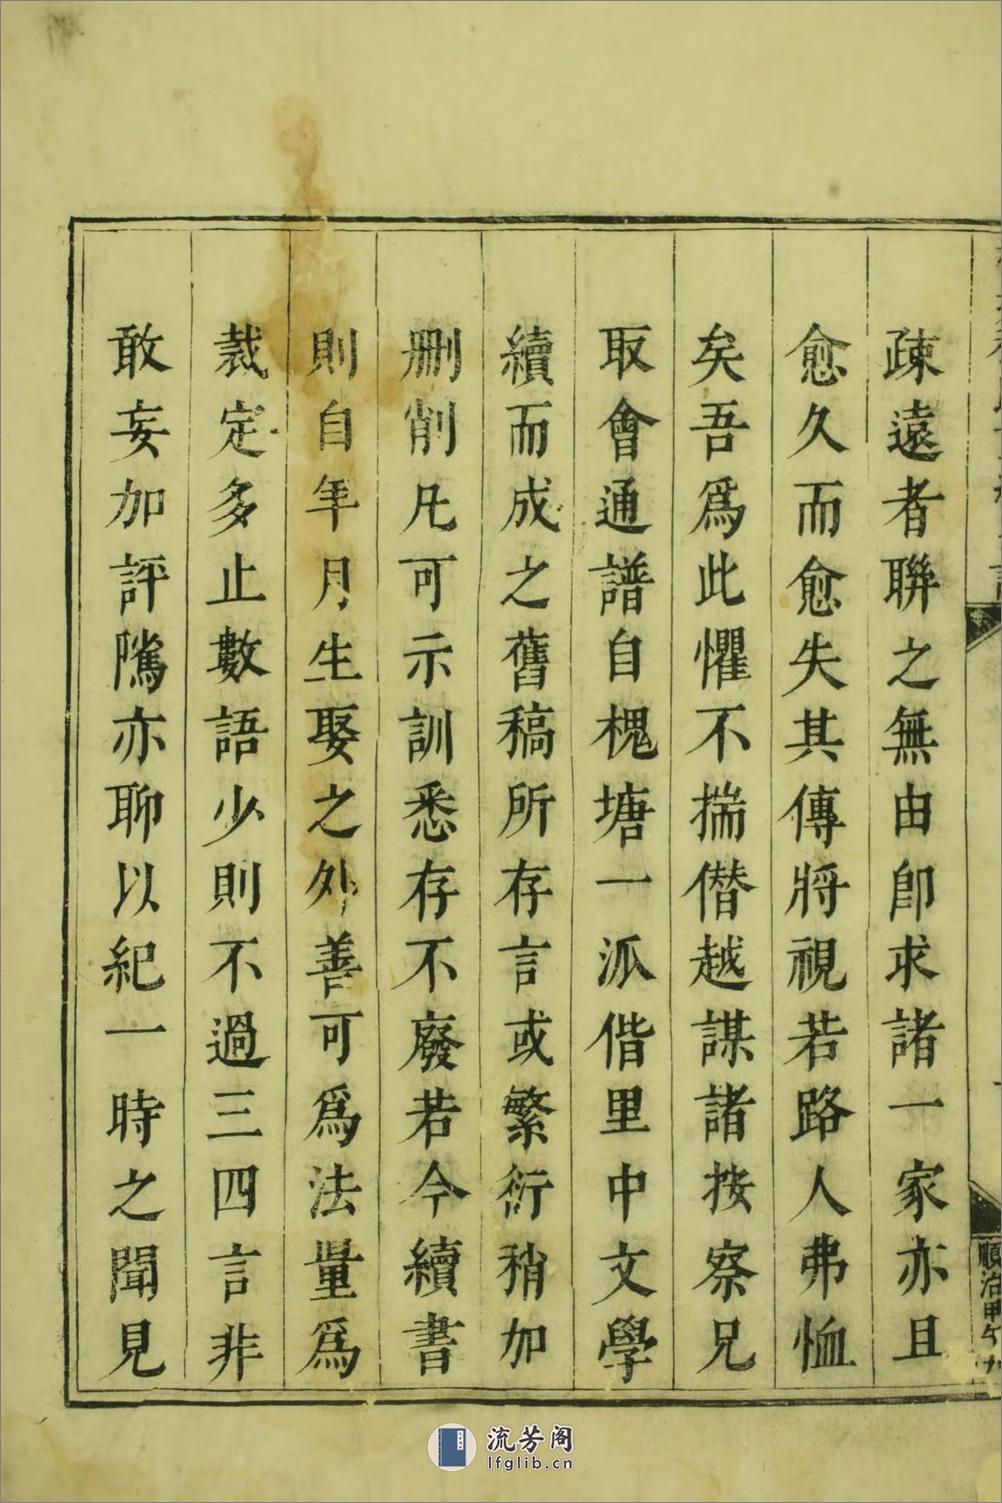 疎遠者聯之無由卽求諸一家亦且
愈久而愈失其傳將視若路人弗恤
矣吾爲此懼不揣僭越謀諸按察兄
取會通譜自槐塘一派偕里中文學
續而成之舊稿所存言或繁衍稍加
刪削凡可示訓悉存不廢若今續書
則自年月生娶之外善可爲法量爲
裁定多止數語少則不過三四言非
敢妄加評隲亦聊以紀一時之聞見
順治甲午
流芳阁
lfglib.cn